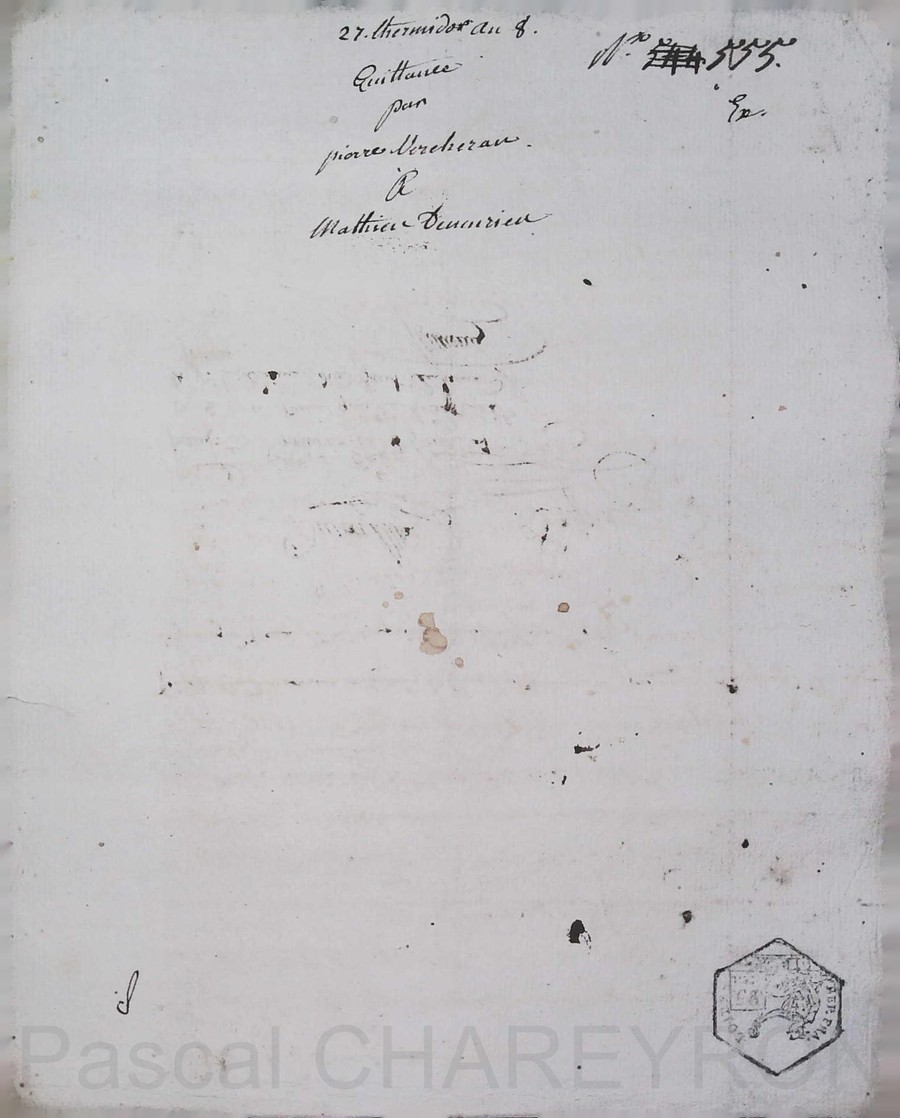 27. thermidor an 8.
N.ro 555.
Quittance
par
Ex.
pierre Vercheran.
A
Mathieu Demurieu
Pascal CHAREYRON